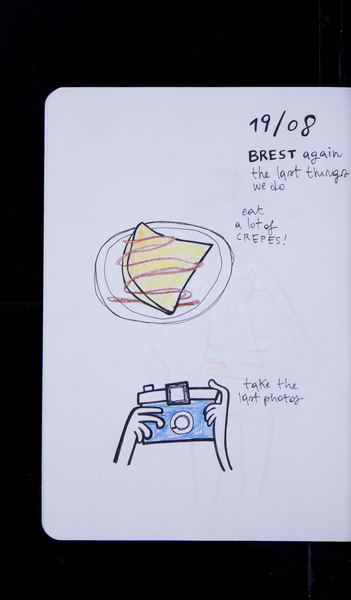 19/08
BREST again
the last things
we do
eat
a lot of
CREPES!
take the
last photos